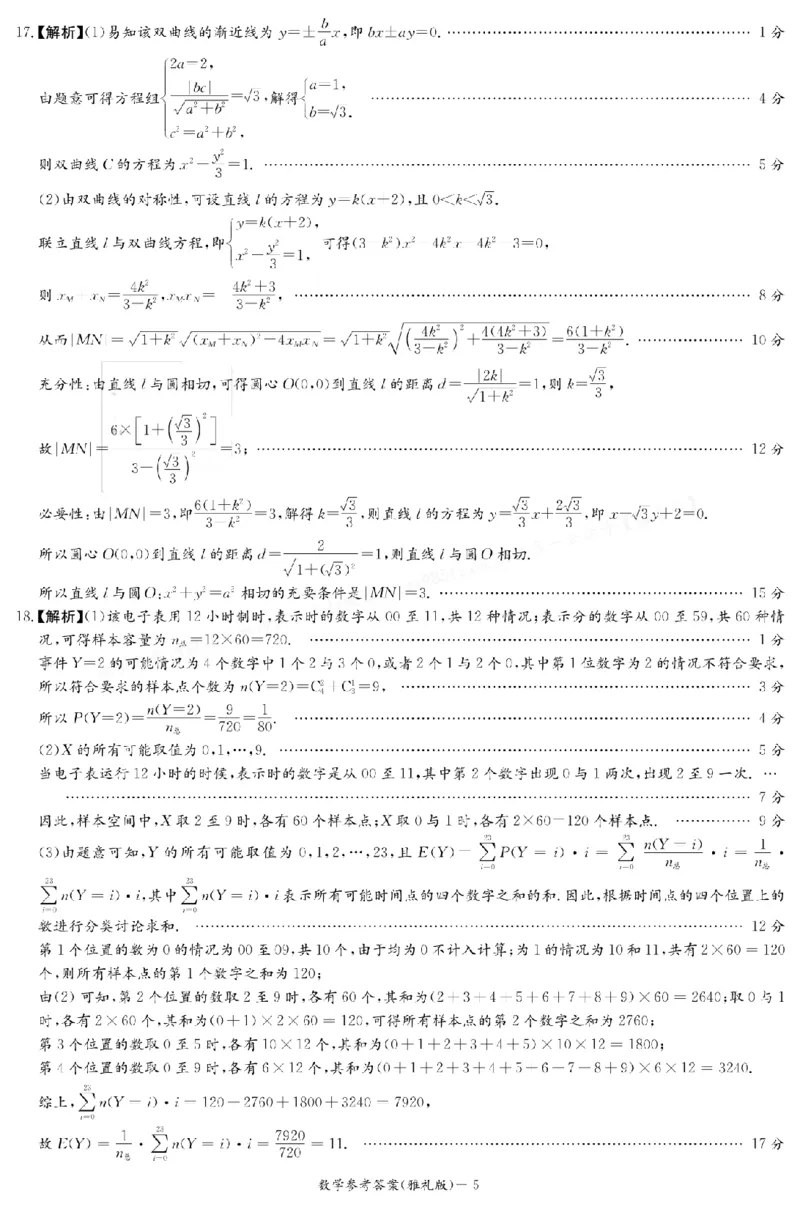 17.【解析】(1)易知该双曲线的渐近线为 y=±b/a x,即 bx±ay=0. …… 1分
由题意可得方程组{2a=2, |bc|/√(a²+b²)=√3, c²=a²+b², 解得{a=1, b=√3. …… 4分
则双曲线C的方程为x²-y²/3=1. …… 5分
(2)由双曲线的对称性,可设直线 l 的方程为 y=k(x+2),且 0<k<√3.
联立直线 l 与双曲线方程,即{y=k(x+2), x²-y²/3=1, 可得(3-k²)x²-4k²x-4k²-3=0,
则 x_M+x_N=4k²/(3-k²),x_Mx_N=-(4k²+3)/(3-k²), …… 8分
从而|MN|=√(1+k²)√((x_M+x_N)²-4x_Mx_N)=√(1+k²)√((4k²/(3-k²))²+4(4k²+3)/(3-k²))=6(1+k²)/(3-k²). …… 10分
充分性:由直线 l 与圆相切,可得圆心 O(0,0)到直线 l 的距离 d=|2k|/√(1+k²)=1,则 k=√3/3,
故|MN|=6×[1+(√3/3)²]/(3-(√3/3)²)=3; …… 12分
必要性:由|MN|=3,即6(1+k²)/(3-k²)=3,解得 k=√3/3,则直线 l 的方程为 y=√3/3 x+2√3/3,即 x-√3y+2=0.
所以圆心 O(0,0)到直线 l 的距离 d=2/√(1+(√3)²)=1,则直线 l 与圆 O 相切.
所以直线 l 与圆 O:x²+y²=a² 相切的充要条件是|MN|=3. …… 15分
18.【解析】(1)该电子表用 12 小时制时,表示时的数字从 00 至 11,共 12 种情况;表示分的数字从 00 至 59,共 60 种情
况,可得样本容量为 n总=12×60=720. …… 1分
事件 Y=2 的可能情况为 4 个数字中 1 个 2 与 3 个 0,或者 2 个 1 与 2 个 0,其中第 1 位数字为 2 的情况不符合要求,
所以符合要求的样本点个数为 n(Y=2)=C₄²+C₃¹=9, …… 3分
所以 P(Y=2)=n(Y=2)/n总=9/720=1/80. …… 4分
(2)X 的所有可能取值为 0,1,…,9. …… 5分
当电子表运行 12 小时的时候,表示时的数字是从 00 至 11,其中第 2 个数字出现 0 与 1 两次,出现 2 至 9 一次. …
…… 7分
因此,样本空间中,X 取 2 至 9 时,各有 60 个样本点;X 取 0 与 1 时,各有 2×60=120 个样本点. …… 9分
(3)由题意可知,Y 的所有可能取值为 0,1,2,…,23,且 E(Y)=∑_{i=0}^{23}P(Y=i)·i=∑_{i=0}^{23} n(Y=i)/n总·i=1/n总·
∑_{i=0}^{23}n(Y=i)·i,其中∑_{i=0}^{23}n(Y=i)·i表示所有可能时间点的四个数字之和的和.因此,根据时间点的四个位置上的
数进行分类讨论求和. …… 12分
第 1 个位置的数为 0 的情况为 00 至 09,共 10 个,由于均为 0 不计入计算;为 1 的情况为 10 和 11,共有 2×60=120
个,则所有样本点的第 1 个数字之和为 120;
由(2)可知,第 2 个位置的数取 2 至 9 时,各有 60 个,其和为(2+3+4+5+6+7+8+9)×60=2640;取 0 与 1
时,各有 2×60 个,其和为(0+1)×2×60=120,可得所有样本点的第 2 个数字之和为 2760;
第 3 个位置的数取 0 至 5 时,各有 10×12 个,其和为(0+1+2+3+4+5)×10×12=1800;
第 4 个位置的数取 0 至 9 时,各有 6×12 个,其和为(0+1+2+3+4+5+6+7+8+9)×6×12=3240.
综上,∑_{i=0}^{23}n(Y=i)·i=120+2760+1800+3240=7920,
故 E(Y)=1/n总·∑_{i=0}^{23}n(Y=i)·i=7920/720=11. …… 17分
数学参考答案(雅礼版)-5